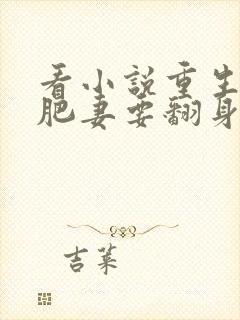 看小说重生
肥妻要翻身
吉莱